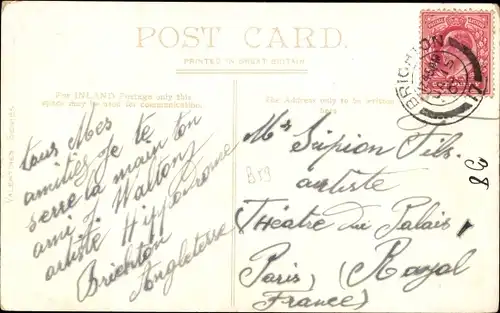 POST CARD.
PRINTED IN GREAT BRITAIN
For INLAND Postage only this
space may be used for communication.
The Address only to be written
here.
VALENTINES SERIES
BRIGHTON
tous Mes
amitiés je te
serre la main ton
ami J. Waltons
artiste Hippodrome
Brichton
Angleterre
B59
Mr Supion Fils.
artiste
Théatre du Palais
Paris) (Royal
France)